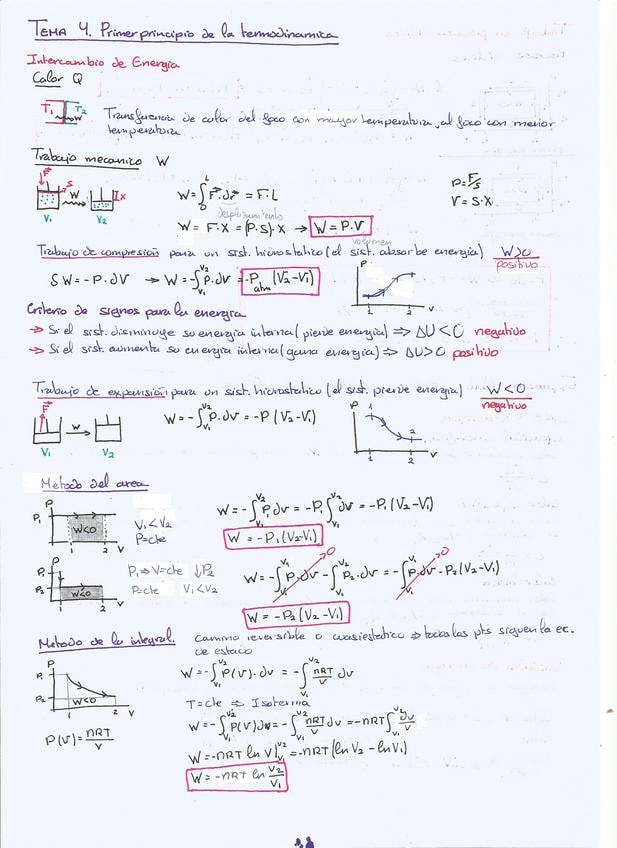 TEMA 4. Primer principio de la termodinamica
Intercambio de Energía
Calor Q
T1 T2 W
Transferencia de calor del foco con mayor temperatura, al foco con menor
temperatura
Trabajo mecanico W
F S W Ix
V1 V2
W = ∫₀ᴸ F·dr = F·L
desplazamiento
W = F·X = (P·S)·X → W = P·V
volumen
P = F/S
V = S·X
Trabajo de compresión para un sist. hidrostatico (el sist. absorbe energía) W>0
positivo
δW = -P·dV → W = -∫_{V1}^{V2} P·dV = -P_{atm} (V2-V1)
P 1 2 V
Criterio de signos para la energía
→ Si el sist. disminuye su energia interna (pierde energía) ⇒ ΔU < 0 negativo
→ Si el sist. aumenta su energía interna (gana energía) ⇒ ΔU > 0 positivo
Trabajo de expansión para un sist. hidrostatico (el sist. pierde energía) W<0
negativo
F W
V1 V2
W = -∫_{V1}^{V2} P·dV = -P (V2-V1)
P 1 2 1 2 V
Metodo del area
P P1 W<0 1 2 V
V1 < V2
P=cte
W = -∫_{V1}^{V2} P1·dV = -P1 ∫_{V1}^{V2} dV = -P1 (V2-V1)
W = -P1 (V2-V1)
P P1 P2 W<0 1 2 V
P1 ⇒ V=cte ↓P2
P=cte V1<V2
W = -∫_{V1}^{V1} P·dV - ∫_{V1}^{V2} P2·dV = -∫_{V1}^{V1} P·dV - P2 (V2-V1)
0 0
W = -P2 (V2-V1)
Metodo de la integral. camino reversible o cuasiestatico ⇒ todos los pts siguen la ec.
de estado
P P1 P2 W<0 1 2 V
P(V) = nRT/V
W = -∫_{V1}^{V2} P(V)·dV = -∫_{V1}^{V2} nRT/V dV
T=cte ⇒ Isoterma
W = -∫_{V1}^{V2} P(V)dV = -∫_{V1}^{V2} nRT/V dV = -nRT ∫_{V1}^{V2} dV/V
W = -nRT ln V|_{V1}^{V2} = -nRT (ln V2 - ln V1)
W = -nRT ln V2/V1